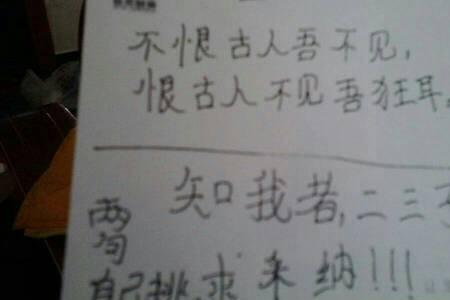 不恨古人吾不见,
恨古人不见吾狂耳。
知我者,二三子
两句
自己挑,求采纳!!!